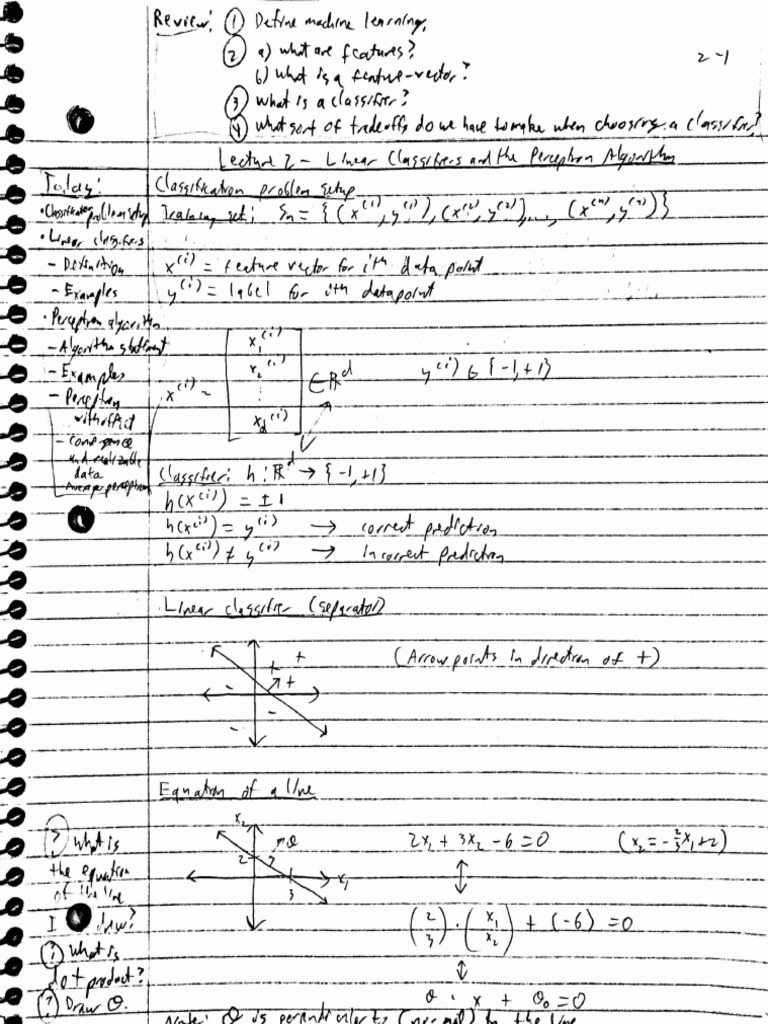 Review: ① Define machine learning.
② a) what are features?
b) What is a feature-vector?
2-1
③ what is a classifier?
④ what sort of tradeoffs do we have to make when choosing a classifier?
Lecture 2 - Linear Classifiers and the Perceptron Algorithm
Today:
• Classification problem setup
• Linear classifiers
- Definition
- Examples
• Perceptron algorithm
- Algorithm statement
- Examples
- Perceptron
with offset
- convergence
and realizable
data
Average perceptron
Classification problem setup
Training set: Sn = {(x^(1), y^(1)), (x^(2), y^(2)), ..., (x^(n), y^(n))}
x^(i) = feature vector for ith data point
y^(i) = label for ith datapoint
x^(i) = [x_1^(i) x_2^(i) ⋮ x_d^(i)] ∈ ℝ^d y^(i) ∈ {-1, +1}
Classifier: h: ℝ^d → {-1, +1}
h(x^(i)) = ±1
h(x^(i)) = y^(i) → correct prediction
h(x^(i)) ≠ y^(i) → incorrect prediction
Linear classifier (separator)
+ + + - - -
(Arrow points in direction of +)
Equation of a line
x_2 θ 2 x_1 3
2x_1 + 3x_2 - 6 = 0 (x_2 = -2/3 x_1 + 2)
↕
(2 3) · (x_1 x_2) + (-6) = 0
↕
θ · x + θ_0 = 0
? What is
the equation
of the line
I draw?
? What is
dot product?
? Draw θ.
Note: θ is perpendicular to (normal) to the line